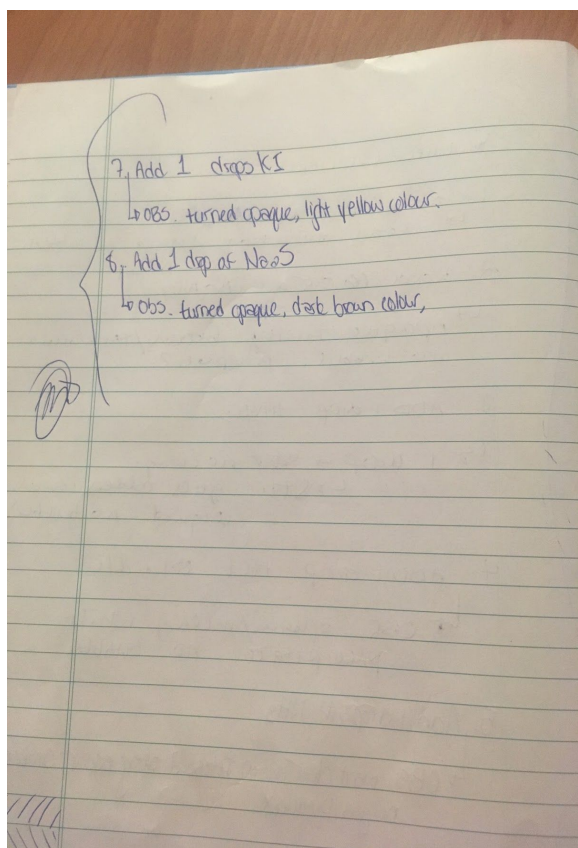 7. Add 1 drops KI
OBS. turned opaque, light yellow colour.
8. Add 1 drop of Na2S
Obs. turned opaque, dark brown colour,